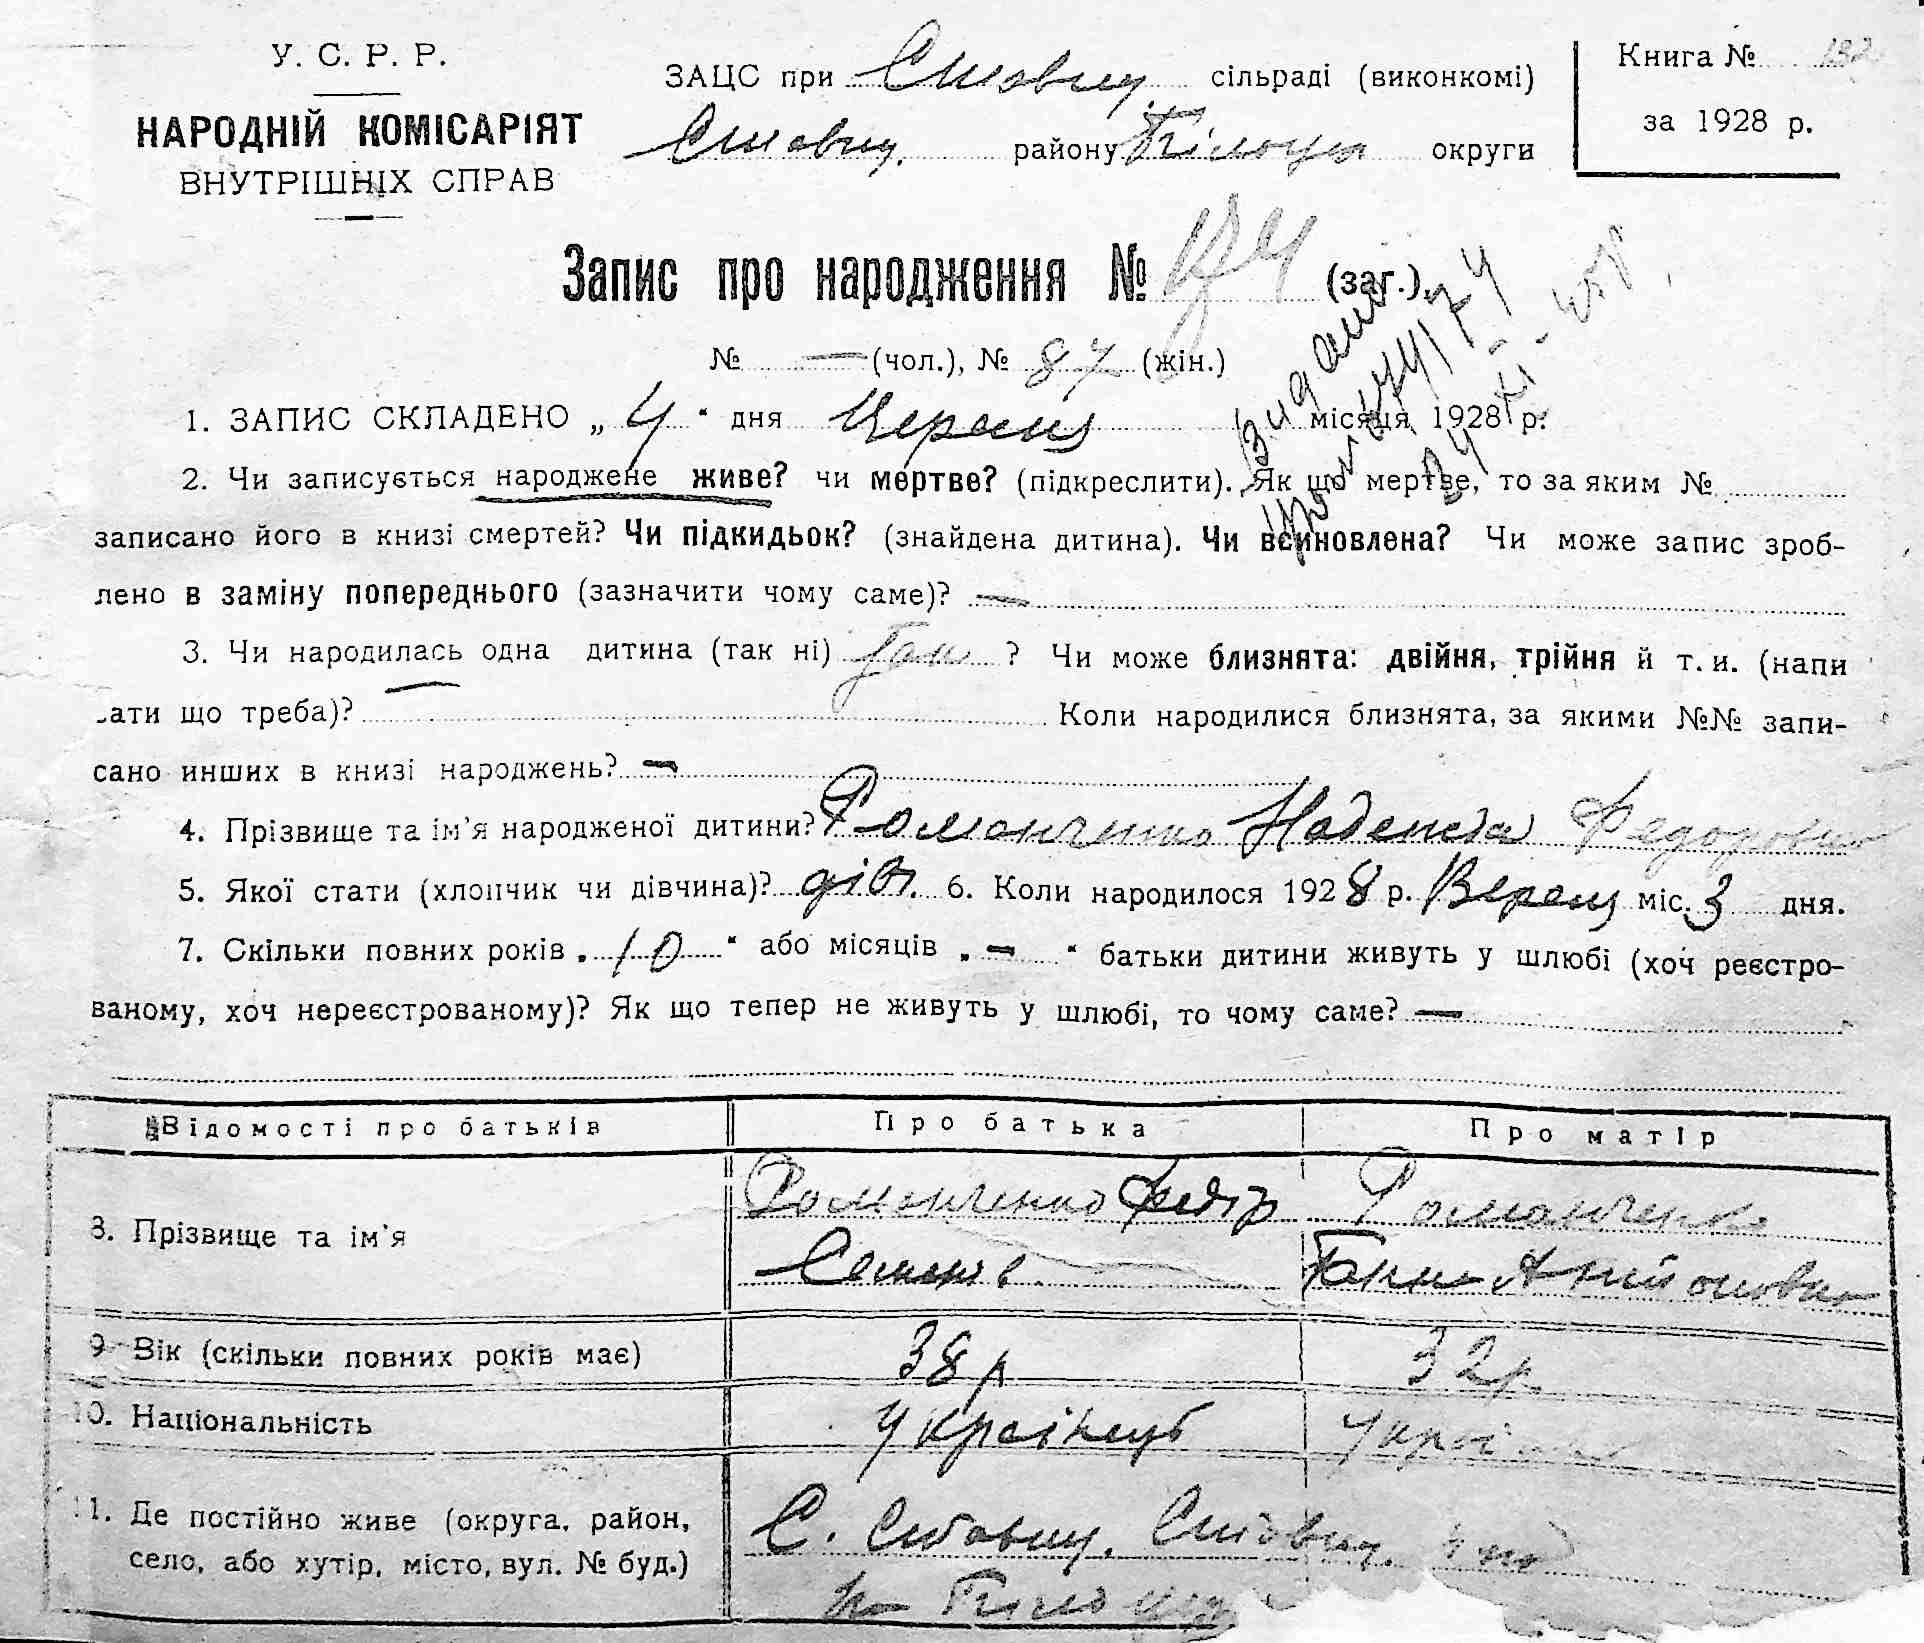 У. С. Р. Р.
НАРОДНІЙ КОМІСАРІЯТ
ВНУТРІШНІХ СПРАВ
ЗАЦС при сільраді (виконкомі)
району округи
Книга №
за 1928 р.
Запис про народження № (заг.),
№ — (чол.), № 87 (жін.)
1. ЗАПИС СКЛАДЕНО „ 4 “ дня місяця 1928 р.
2. Чи записується народжене живе? чи мертве? (підкреслити). Як що мертве, то за яким №
записано його в книзі смертей? Чи підкидьок? (знайдена дитина). Чи всиновлена? Чи може запис зроб-
лено в заміну попереднього (зазначити чому саме)? —
3. Чи народилась одна дитина (так ні) Так ? Чи може близнята: двійня, трійня й т. и. (напи
сати що треба)? Коли народилися близнята, за якими №№ запи-
сано инших в книзі народжень? —
4. Прізвище та ім'я народженої дитини? Романченко Надежда Федоровна
5. Якої стати (хлопчик чи дівчина)? дівч. 6. Коли народилося 1928 р. міс. 3 дня.
7. Скільки повних років „ 10 “ або місяців „ — “ батьки дитини живуть у шлюбі (хоч реєстро-
ваному, хоч нереєстрованому)? Як що тепер не живуть у шлюбі, то чому саме? —
Відомості про батьків Про батька Про матір
8. Прізвище та ім'я Романченко Федір Романченко
Семенів Ганна Антоновна
9. Вік (скільки повних років має) 38 р 32 р
10. Національність Українець
11. Де постійно живе (округа, район,
село, або хутір, місто, вул. № буд.)